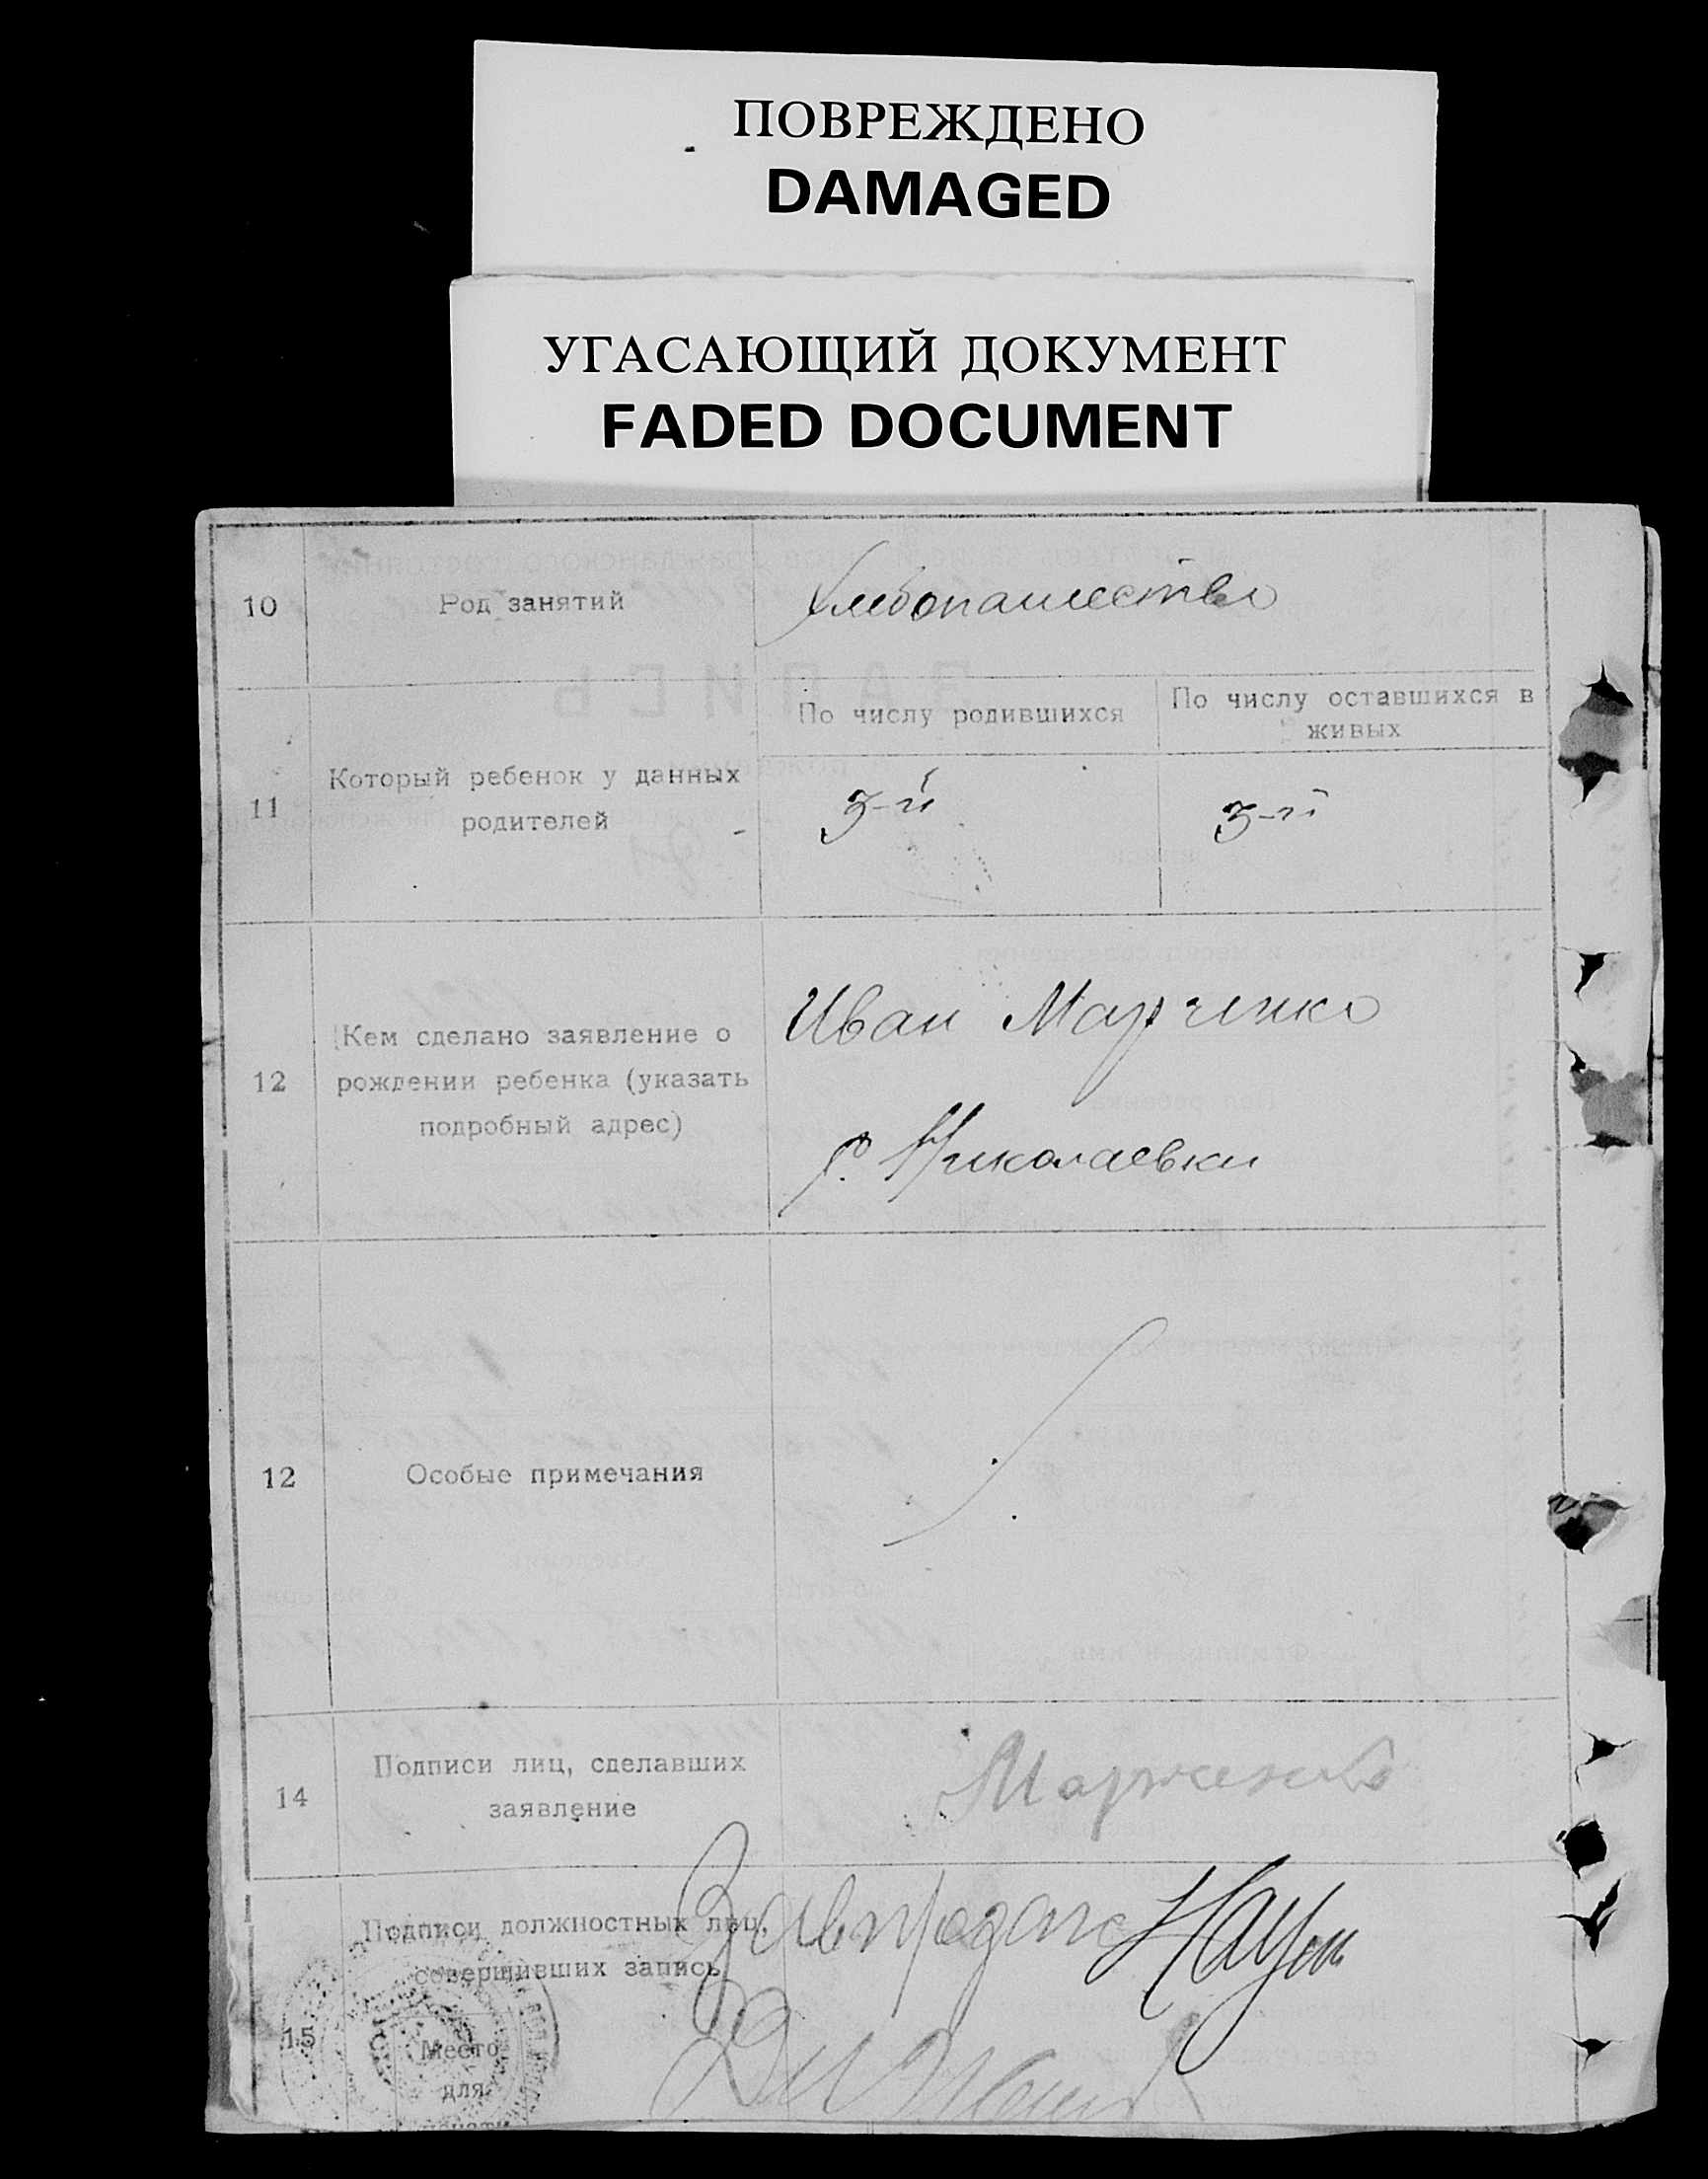 ПОВРЕЖДЕНО
DAMAGED
УГАСАЮЩИЙ ДОКУМЕНТ
FADED DOCUMENT
10
Род занятий
Хлебопашество
11
Который ребенок у данных
родителей
По числу родившихся
По числу оставшихся в
живых
3-й
3-й
12
Кем сделано заявление о
рождении ребенка (указать
подробный адрес)
Иван Марченко
Николаевки
12
Особые примечания
14
Подписи лиц, сделавших
заявление
Марченко
15
Подписи должностных лиц,
совершивших запись
Место
для
печати